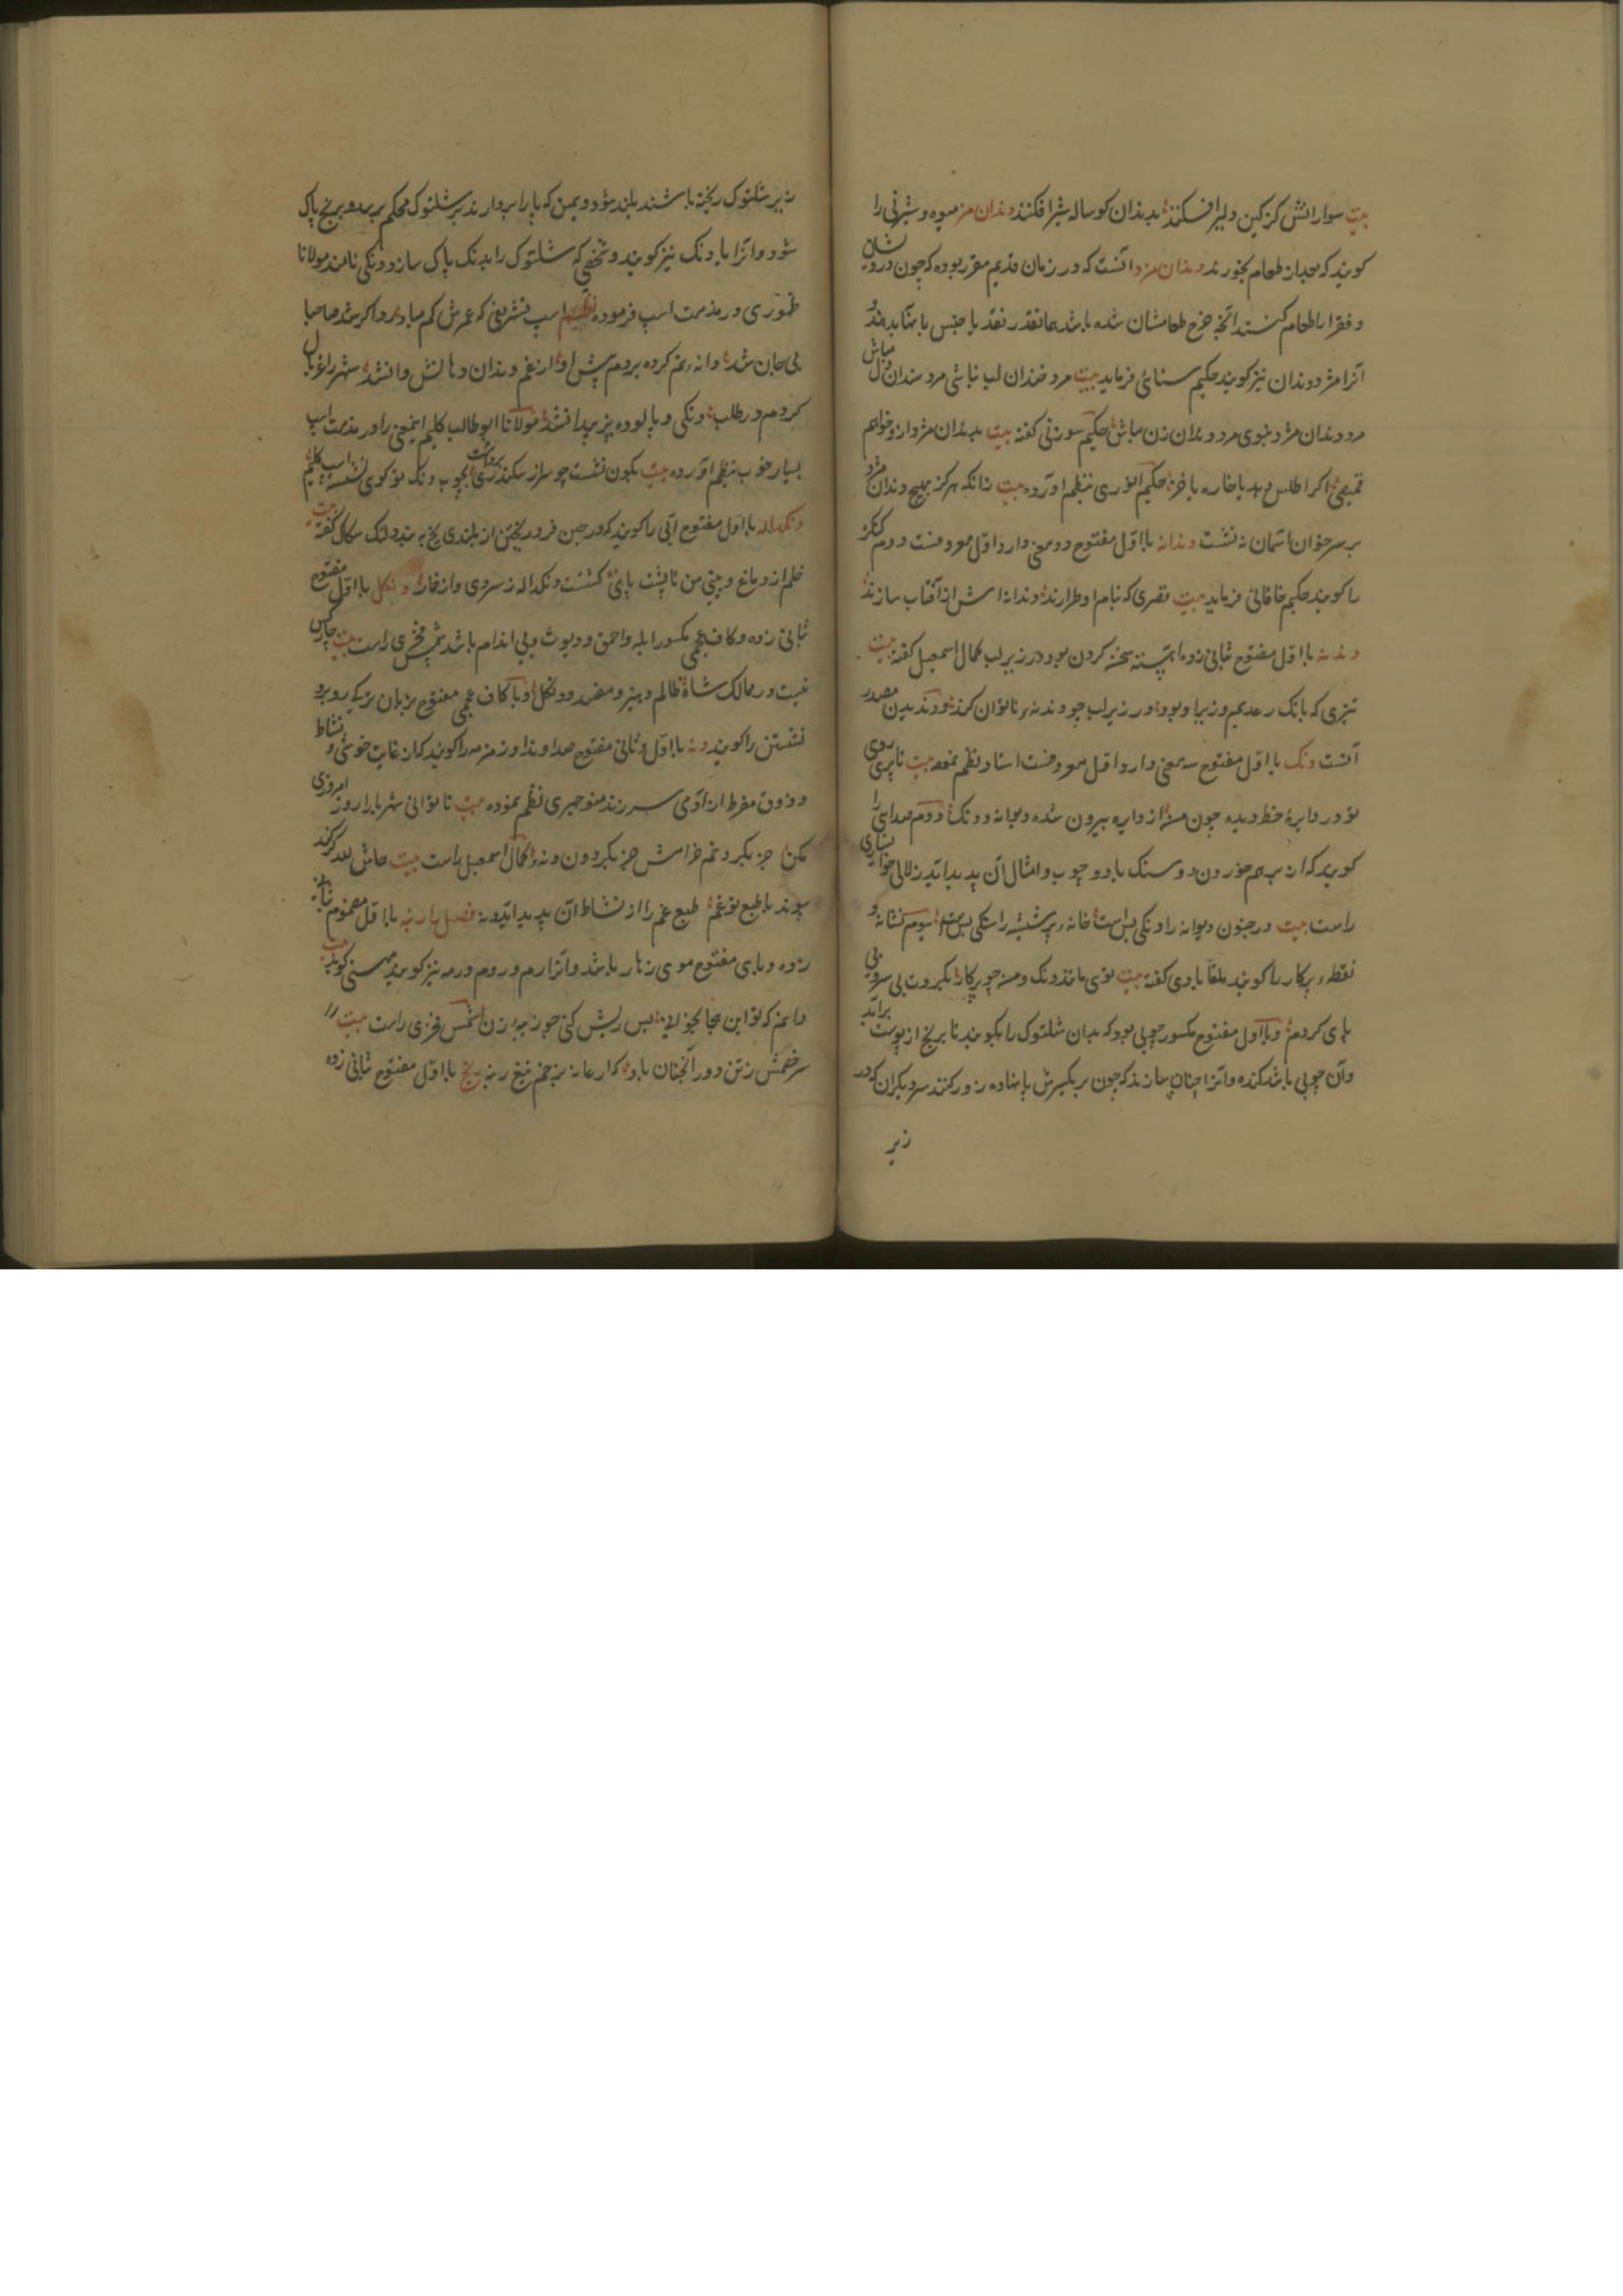 بیت سوارانش کزکین دلیرافکنند بدندان کوساله شیرافکنند دندان مز میوه و شیرنی را
کویند که بعداز طعام بخورند دندان مزد انست که در زمان قدیم مقرر بوده که چون درویشان
و فقرا را طعام کنند انچه خرج طعامشان شده باشد همانقدر نقد یا جنس بانها بدهند و
آنرا مزد دندان نیز کویند حکیم سنائی فرماید بیت مرد خندان لب نباشی مرد سندان دل مباش
مرد دندان مزد نبوی مرد دندان زن مباش حکیم سوزنی کفته بیت بدندان مزد از تو خواهم
قمیصی اکر اطلس دهد یا خاره یا خز حکیم انوری نظم اورده بیت زانکه هرکز بهیچ دندان مزد
بر سر خوان اسمان ننشت دندانه بااول مفتوح دو معنی دارد اول معروفست دوم کنکره
را کویند حکیم خاقانی فرماید بیت قصری که بنام او طرازند دندانه اش از آفتاب سازند
دندنه بااول مفتوح بثانی زده اهسته سخن کردن بود در زیر لب کمال اسمعیل کفته بیت
تیزی که بانک رعد بم و زیر او بود در زیر لب چو دندنه ناتوان کرند و دندیدن مصدر
آنست دنک بااول مفتوح سه معنی دارد اول معروفست استاد نظم نموده بیت تا بری روی
تو در دایرهٔ خط دیده چون من از دایره بیرون شده دیوانه و دنک دوم صدایی را
کویند که از برهم خوردن دو سنک یا دو چوب و امثال آن پدید آید زلالی خوانساری
راست بیت در جنون دیوانه را دنکی بس است خانه پر شیشه را سنکی بس است سیوم نشانه و
نقطه پرکار را کویند ملقابادی کفته بیت توی مانند دنک و من چو پرکار بکردت بی سر و بی
پای کردم و بااول مفتوح مکسور چوبی بود که بدان شلتوک را بکوبند تا برنج از پوست برآید
وآن چوبی باشد کنده وانرا چنان سازند که چون بر یکسرش پا نهاده زور کنند سر دیکران که در
زیر
زیر شلتوک ریخته باشند بلند شود و همین که پا را بردارند بر شلتوک محکم بربرد و برنج پاک
شود و انرا پادنک نیز کویند و شخصی که شلتوک را بدنک پاک سازد دنکی نامند مولانا
ظهوری در مذمت اسپ فرموده نظم اسپ تشریفی که عمرش کم مباد مرد اکر شد صاحبا
بی جان شد دانه نم کرده بردم پیش او از غم دندان دهانش وا نشد شهر را غربال
کردم در طلب دنکی و پالوده پز پیدا نشد مولانا ابوطالب کلیم اینمعنی را در مذمت اسپ
بسیار خوب بنظم اورده بیت بکون نشست چو سر از سکندری برداشت بچوب دنک تو کوی نشسته اسپ کلیم
دنکداله بااول مفتوح ابی را کویند که در حین فرو ریختن از بلندی یخ به بندد لنک سکاک کفته بیت
خلم از دماغ و بینی من تا پشت پای کشتست دنکداله ز سردی و از خار دنکل بااول مفتوح
بثانی زده و کاف عجمی مکسور ابله و احمق و دیوث و بی اندام باشد شمس فخری راست بیت چون کس
نیست در ممالک شاه ظالم و هیز و مفسد و دنکل و با کاف عجمی مفتوح بزبان ترکی روبرو
نشستن را کویند دنه بااول و ثانی مفتوح صدا و ندا و زمزمه را کویند که از غایت خوشی و نشاط
و ذوق مفرط از آدمی سر زند منوچهری نظم نموده بیت تا توانی شهریارا روز امروزی
مکن جز بکرد خم خرامش جز بکرد دن دنه کمال اسمعیل راست بیت حاش لله کر کند
پیوند با طبع تو غم طبع غم را از نشاط ان پدید اید دنه فصل راء رنبه بااول مضموم بثانی
زده و بای مفتوح موی زهار باشد وانرا رم و روم و رمه نیز کویند مهستی کوید بیت
دانم که تو این بجا بخوانی پس ریش کنی چو رنبه زن شمس فخری راست بیت
سر خصمش ز تن دور آنچنان باد که از عانه بزخم تیغ رنبه رنج بااول مفتوح بثانی زده